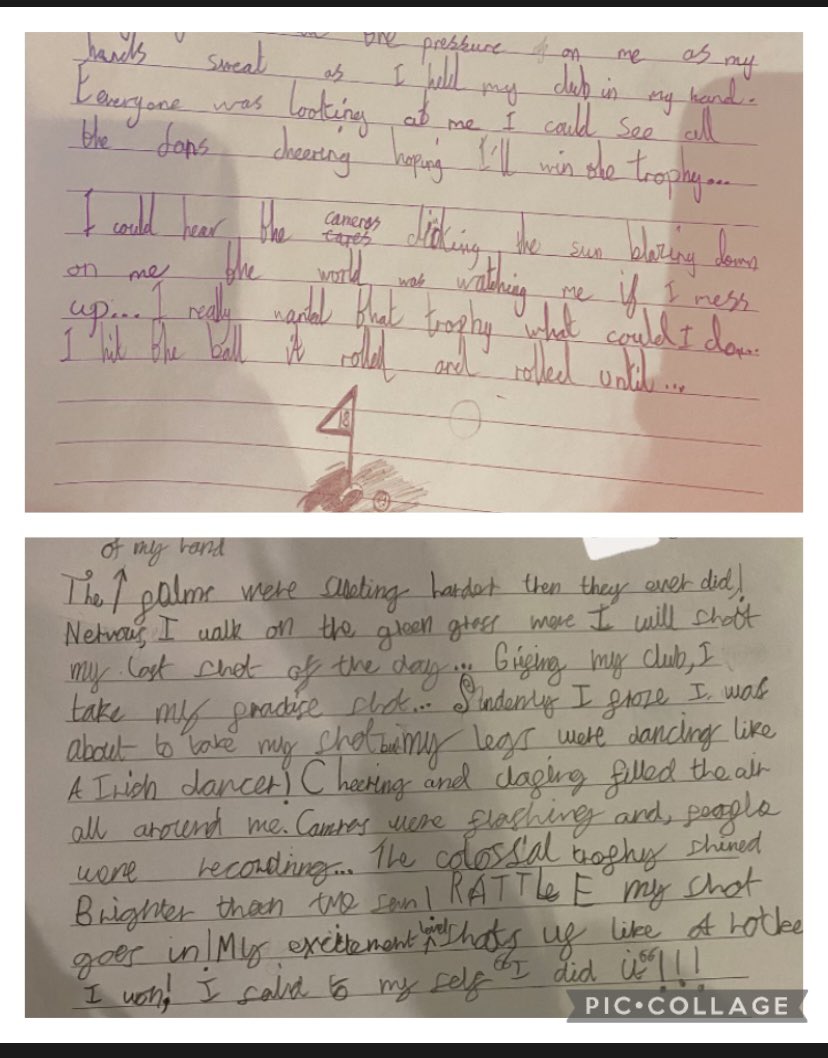 the pressure on me as my
hands sweat as I held my club in my hand.
Everyone was looking at me I could see all
the fans cheering hoping I'll win the trophy...
I could hear the cameras clicking, the sun blazing down
on me the world was watching me if I mess
up... I really wanted that trophy what could I do...
I hit the ball it rolled and rolled until...
18
of my hand
The ↑ palms were sweting harder then they ever did!
Netvous, I walk on the green grass were I will shoot
my last shot of the day... Griping my club, I
take my practise shot... Sundenly I froze I was
about to take my shot but my legs were dancing like
A Irish dancer! Cheering and claping filled the air
all around me. Camras were flashing and, people
were recording... The colossal trophy shined
Brighter than the sun! RATTLE my shot
goes in! My excitement level shots up like A rocket
I won! I said to my self "I did it"!!!
PIC•COLLAGE